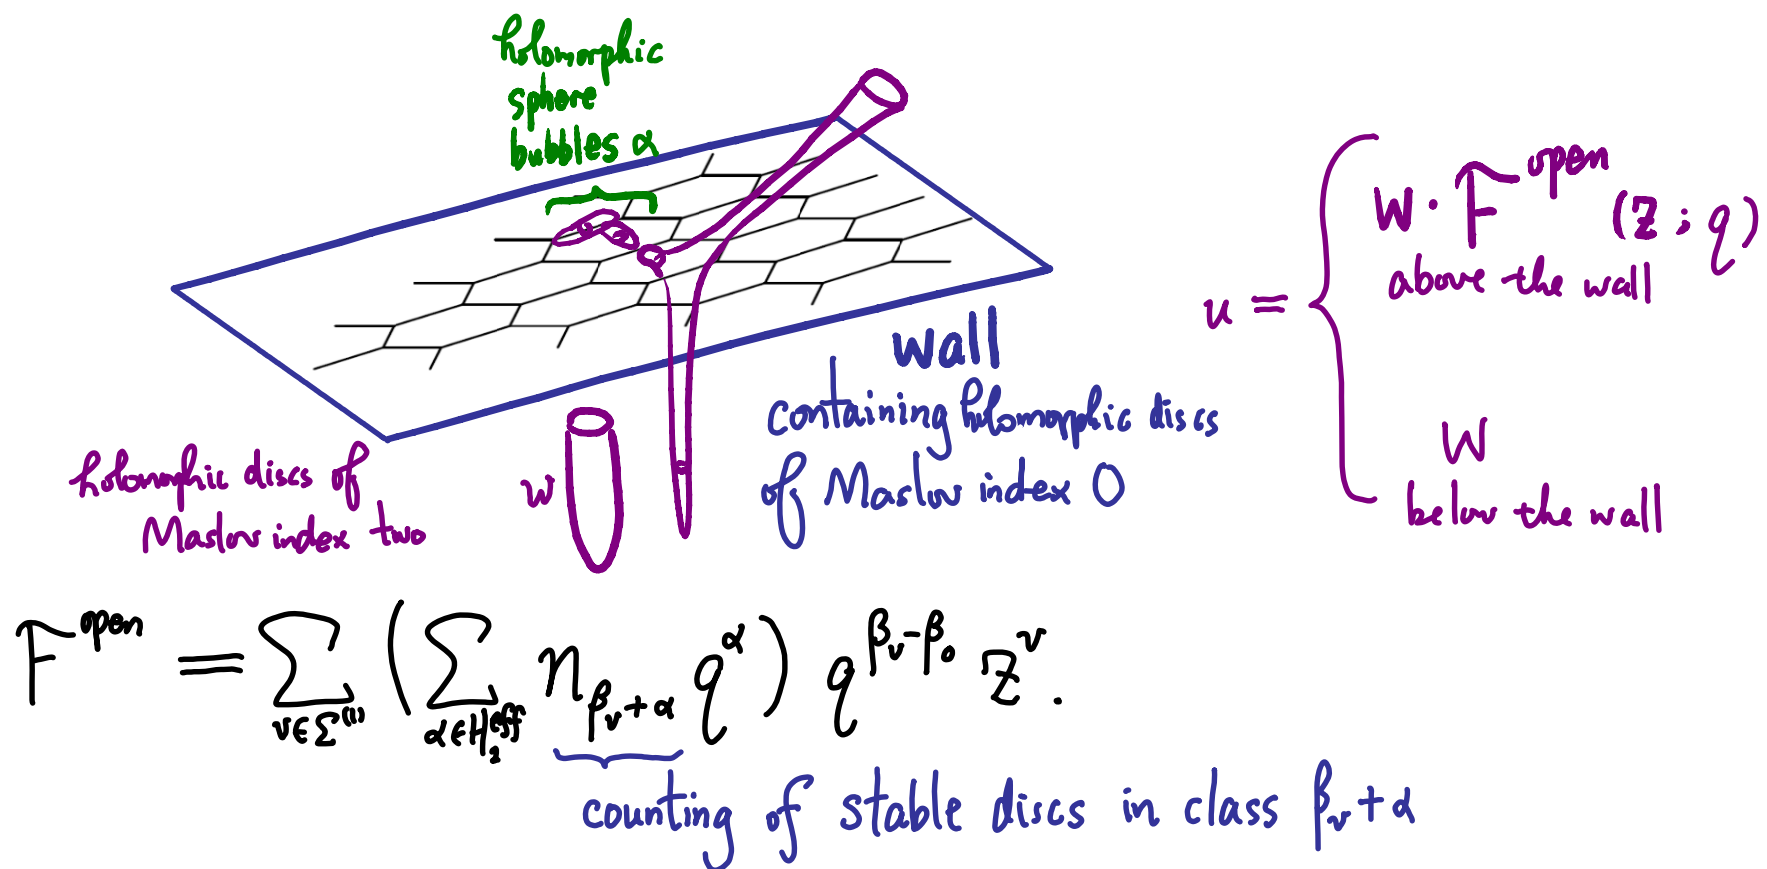 holomorphic
sphere
bubbles α
wall
containing holomorphic discs
of Maslov index 0
holomorphic discs of
Maslov index two
w
u = { W · F^open (Z ; q)
above the wall
W
below the wall
F^open = ∑_{v∈Σ^(1)} ( ∑_{α∈H_2^eff} n_{β_v+α} q^α ) q^{β_v-β_0} Z^v .
counting of stable discs in class β_v + α